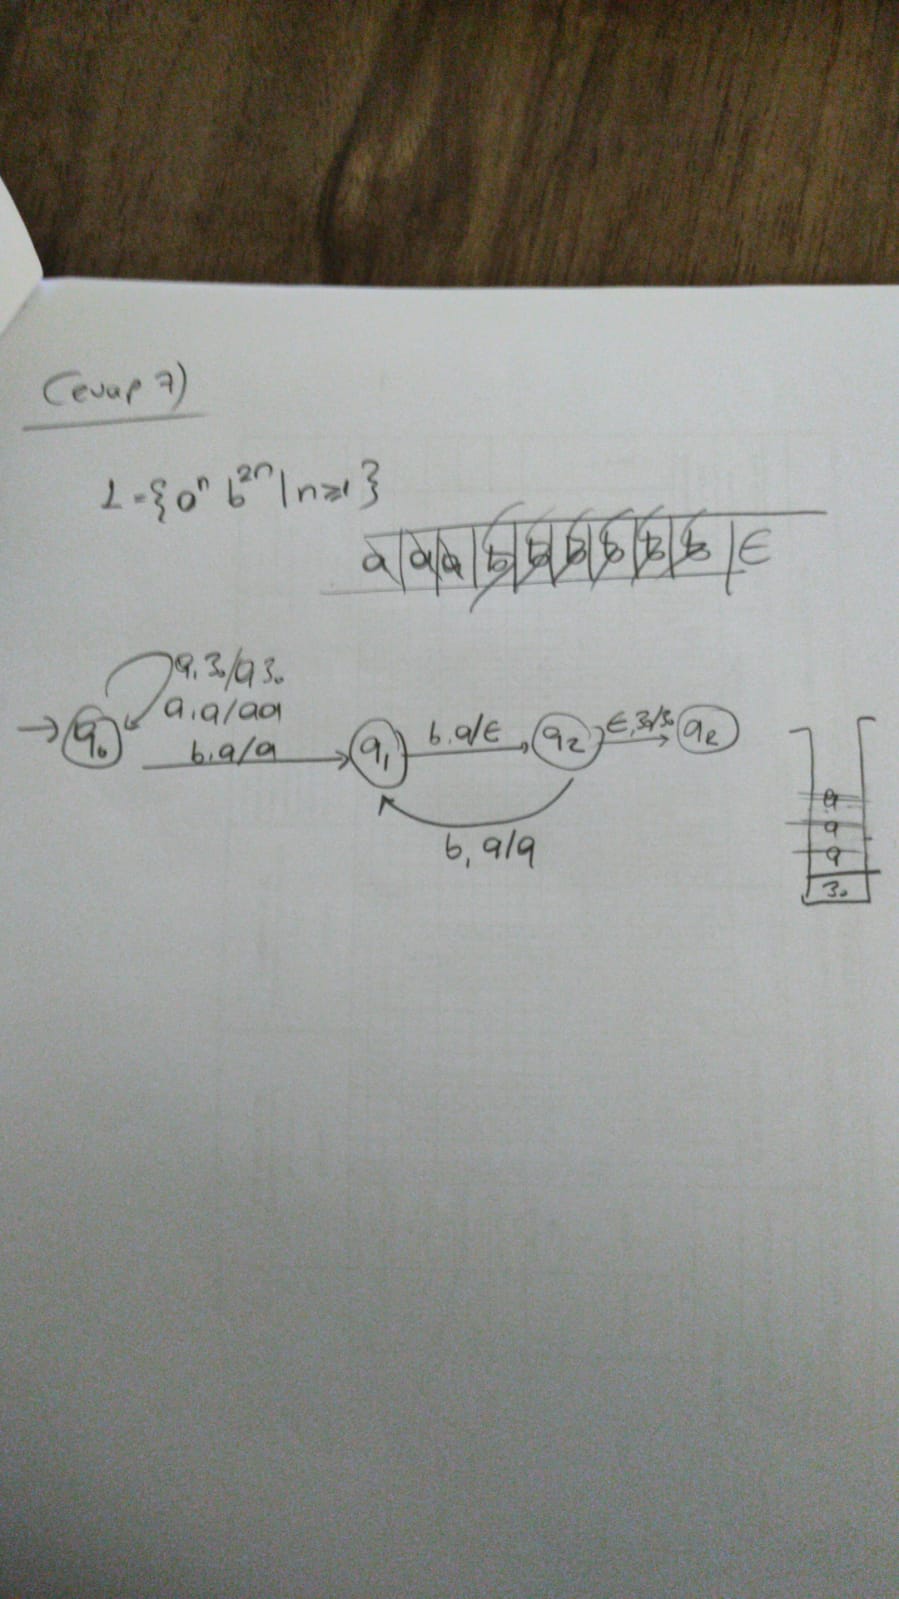 Cevap 7)
L={aⁿ b²ⁿ | n≥1}
a a a b b b b b b ε
a, z₀/a z₀
a, a/aa
→ q₀ b, a/a q₁ b, a/ε q₂ ε, z₀/z₀ q₂
b, a/a
a
a
a
z₀